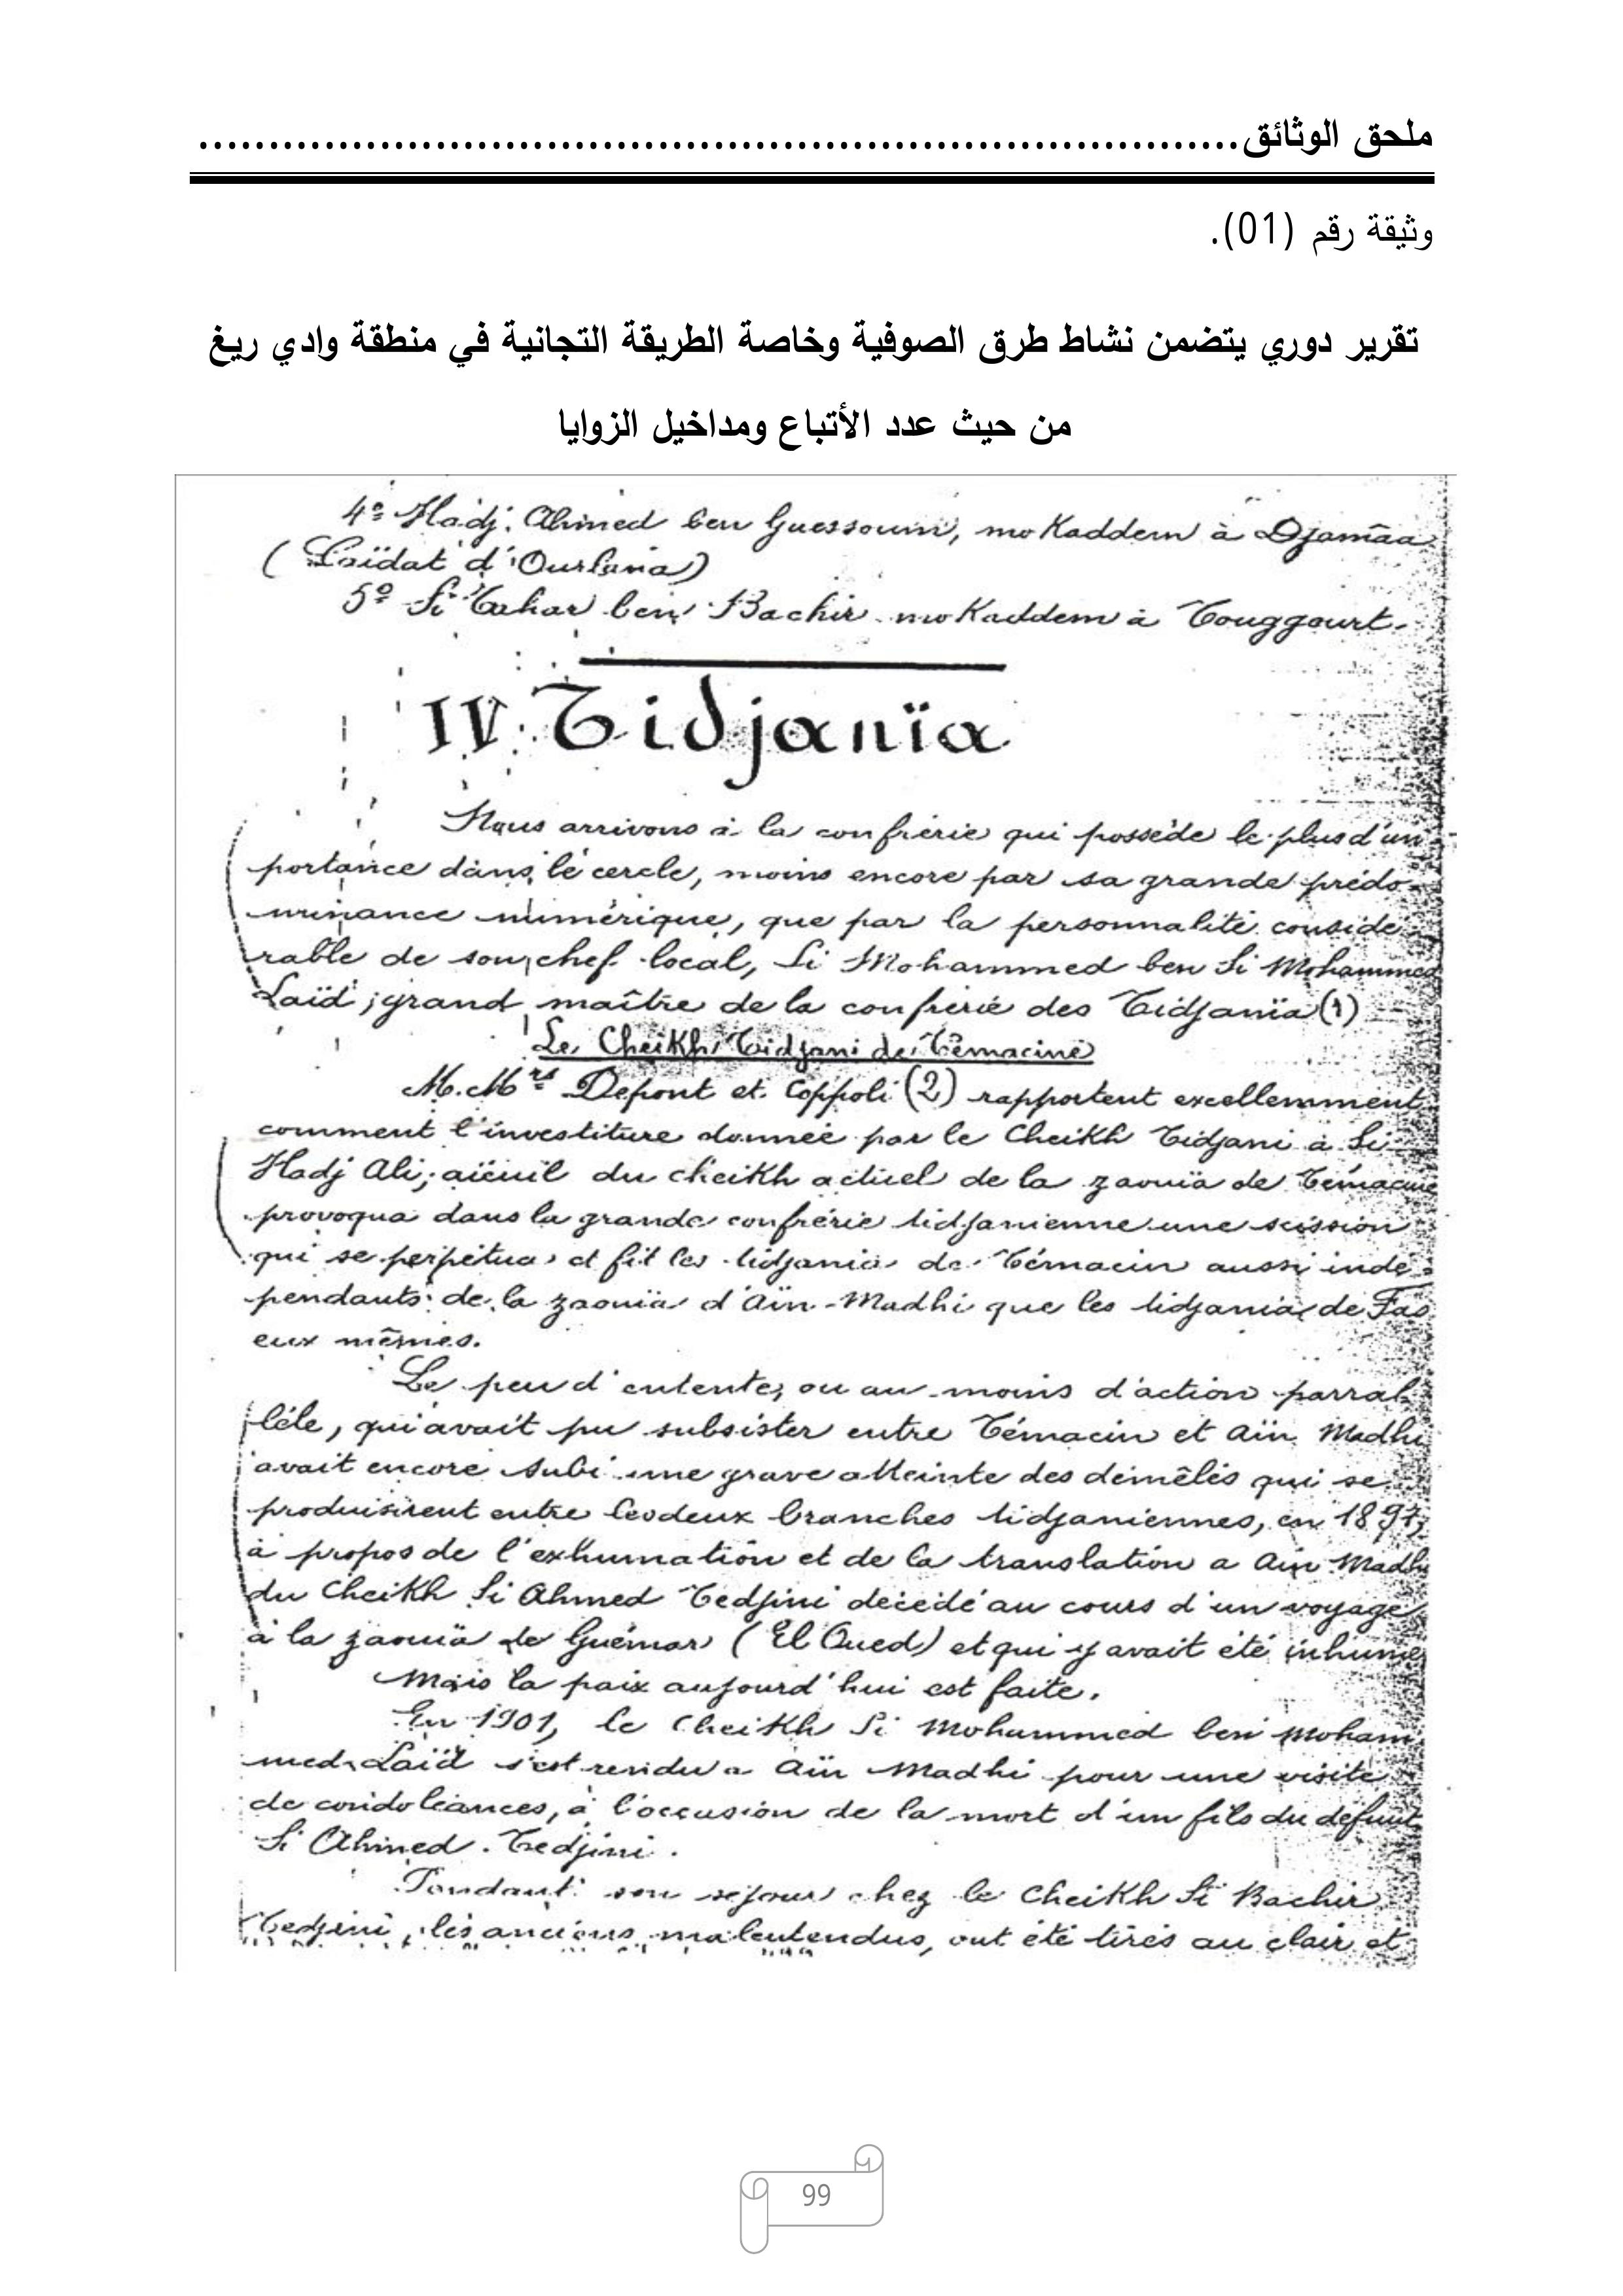 ملحق الوثائق...........................................................................
وثيقة رقم (01).
تقرير دوري يتضمن نشاط طرق الصوفية وخاصة الطريقة التجانية في منطقة وادي ريغ
من حيث عدد الأتباع ومداخيل الزوايا
4º Hadj. Ahmed ben Guessoum, mokaddem à Djamâa
( d'Ourlana)
5º Si Tahar ben Bachir mokaddem à Touggourt.
IV. Tidjanïa
Nous arrivons à la confrérie qui possède le plus d'im
portance dans le cercle, moins encore par sa grande prédo-
minance numérique, que par la personnalité considé-
rable de son chef local, Si Mohammed ben Si Mohammed
Laïd, grand maître de la confrérie des Tidjanïa (1)
Le Cheikh Tidjani de Témacine
M.Mrs Depont et Coppoli (2) rapportent excellemment
comment l'investiture donnée par le Cheikh Tidjani à Si
Hadj Ali, aïeuil du cheikh actuel de la zaouïa de Témacine
provoqua dans la grande confrérie tidjanienne une scission
qui se perpétua et fit les tidjania de Témacin aussi indé-
pendants de la zaouïa d'Aïn-Madhi que les tidjania de Fas
eux mêmes.
Le peu d'entente, ou au moins d'action parral-
lèle, qui avait pu subsister entre Témacin et Aïn Madhi
avait encore subi une grave atteinte des démêlés qui se
produisirent entre les deux branches tidjaniennes, en 1897,
à propos de l'exhumation et de la translation a Aïn Madhi
du Cheikh Si Ahmed Tedjini décédé au cours d'un voyage
à la zaouïa de Guémar (El Oued) et qui y avait été inhumé
Mais la paix aujourd'hui est faite.
En 1901, le Cheikh Si Mohammed ben Moham
med Laïd s'est rendu a Aïn Madhi pour une visite
de condoléances, à l'occasion de la mort d'un fils du défunt
Si Ahmed Tedjini.
Pendant son séjour chez le Cheikh Si Bachir
Tedjini, les anciens malentendus, ont été tirés au clair et
99